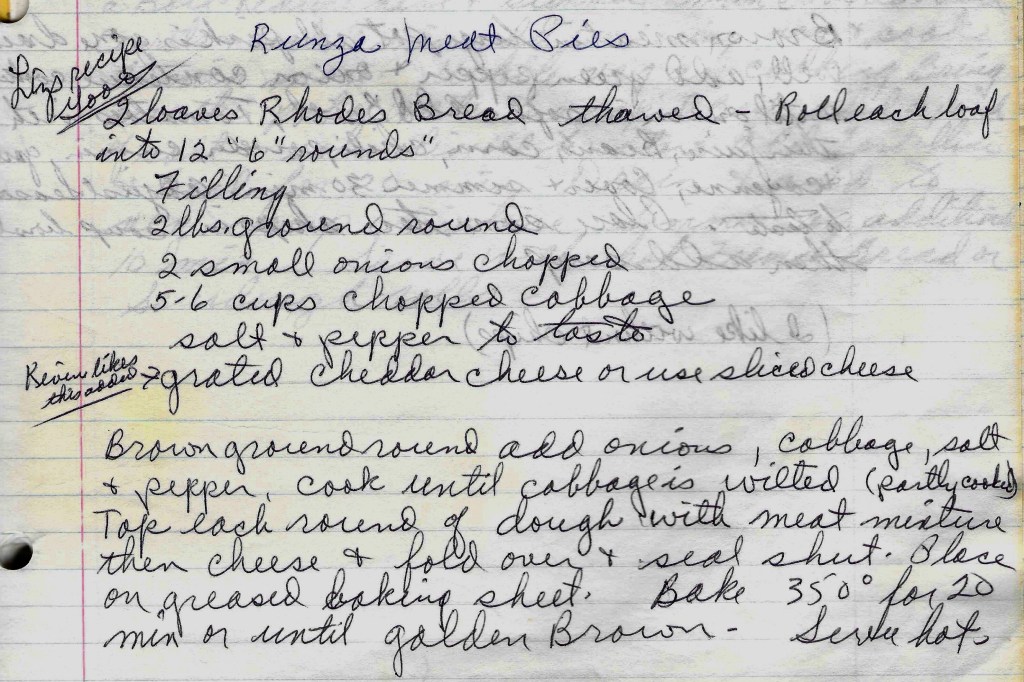 Runza Meat Pies
recipe
good
2 loaves Rhodes Bread thawed - Roll each loaf
into 12 "6" rounds"
Filling
2 lbs. ground round
2 small onions chopped
5-6 cups chopped cabbage
salt & pepper to taste
Kevin likes
this added → grated cheddar cheese or use sliced cheese
Brown ground round add onions, cabbage, salt
& pepper, cook until cabbage is wilted (partly cooked)
Top each round of dough with meat mixture
then cheese & fold over & seal shut. Place
on greased baking sheet. Bake 350° for 20
min or until golden Brown - Serve hot.